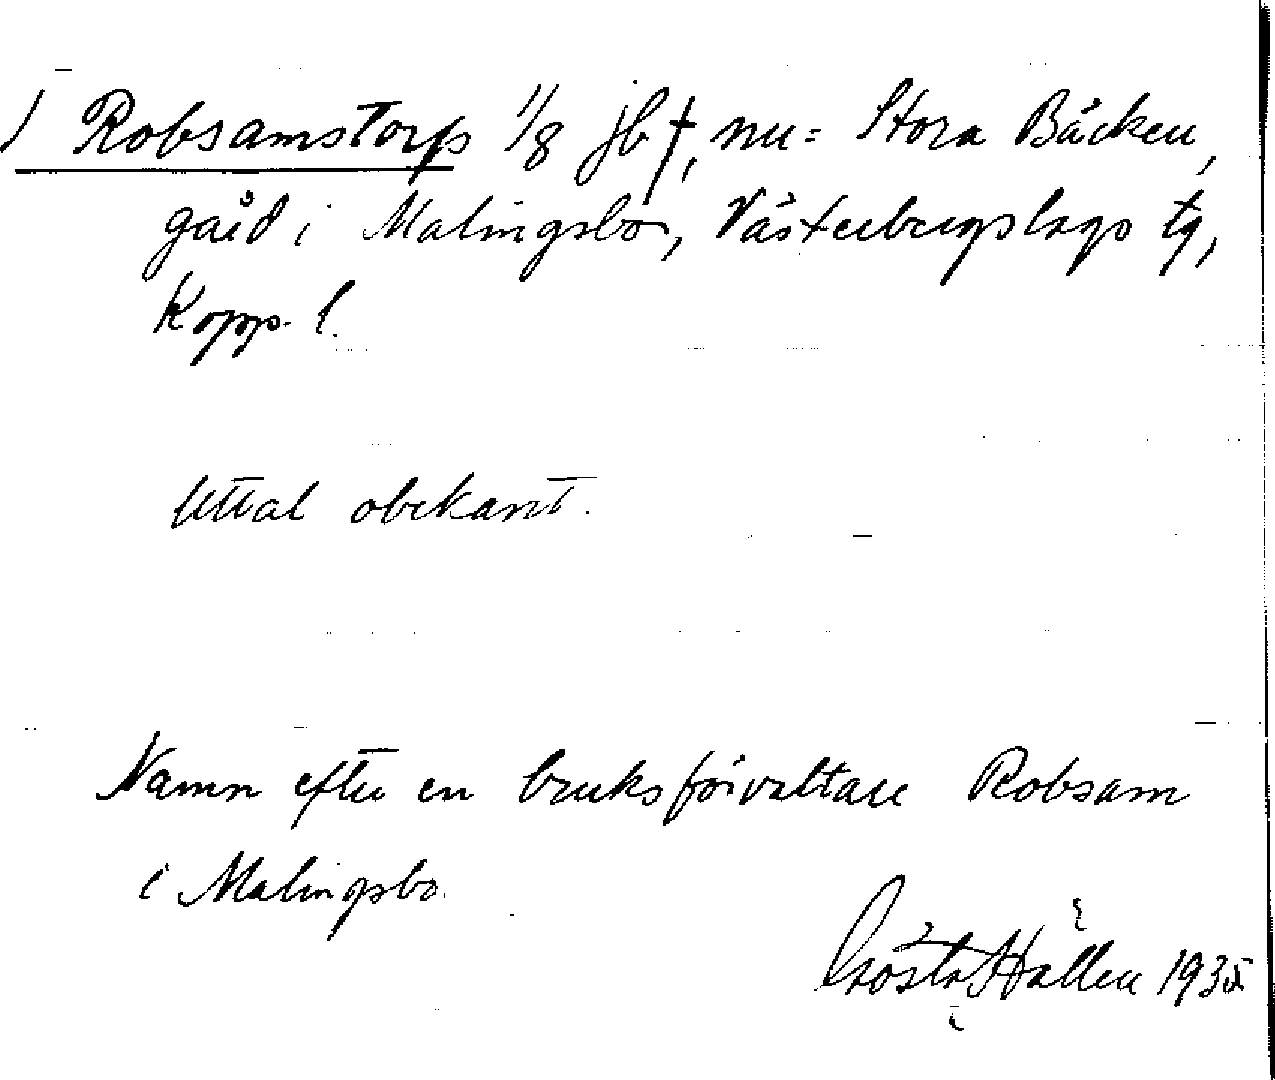 Robsamstorp 1/8 jb †, nu = Stora Bäcken,
gård i Malingsbo, Västerbergslags tg,
Kopp. l.
Uttal obekant.
Namn efter en bruksförvaltare Robsam
i Malingsbo.
Gösta Hallen 1935